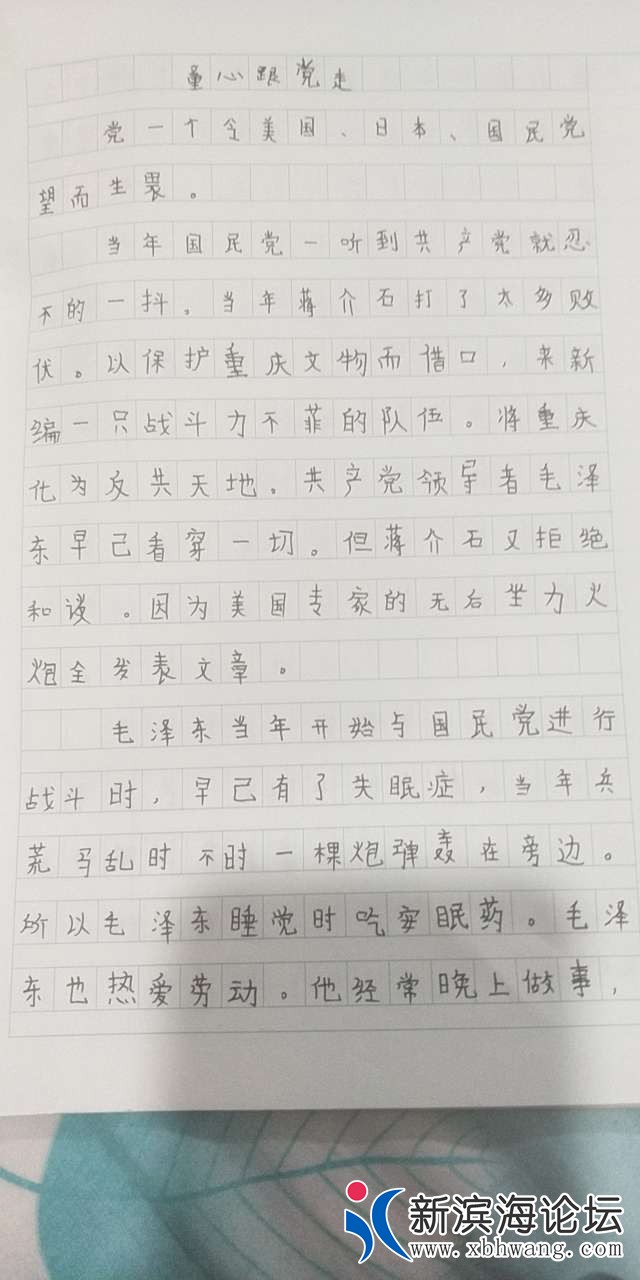 童心跟党走
党一个令美国、日本、国民党
望而生畏。
当年国民党一听到共产党就忍
不的一抖。当年蒋介石打了太多败
伏。以保护重庆文物而借口，来新
编一只战斗力不菲的队伍。将重庆
化为反共天地。共产党领导者毛泽
东早己看穿一切。但蒋介石又拒绝
和谈。因为美国专家的无后坐力火
炮全发表文章。
毛泽东当年开始与国民党进行
战斗时，早己有了失眠症，当年兵
荒马乱时不时一棵炮弹轰在旁边。
所以毛泽东睡觉时吃安眠药。毛泽
东也热爱劳动。他经常晚上做事，
新滨海论坛
www.xbhwang.com